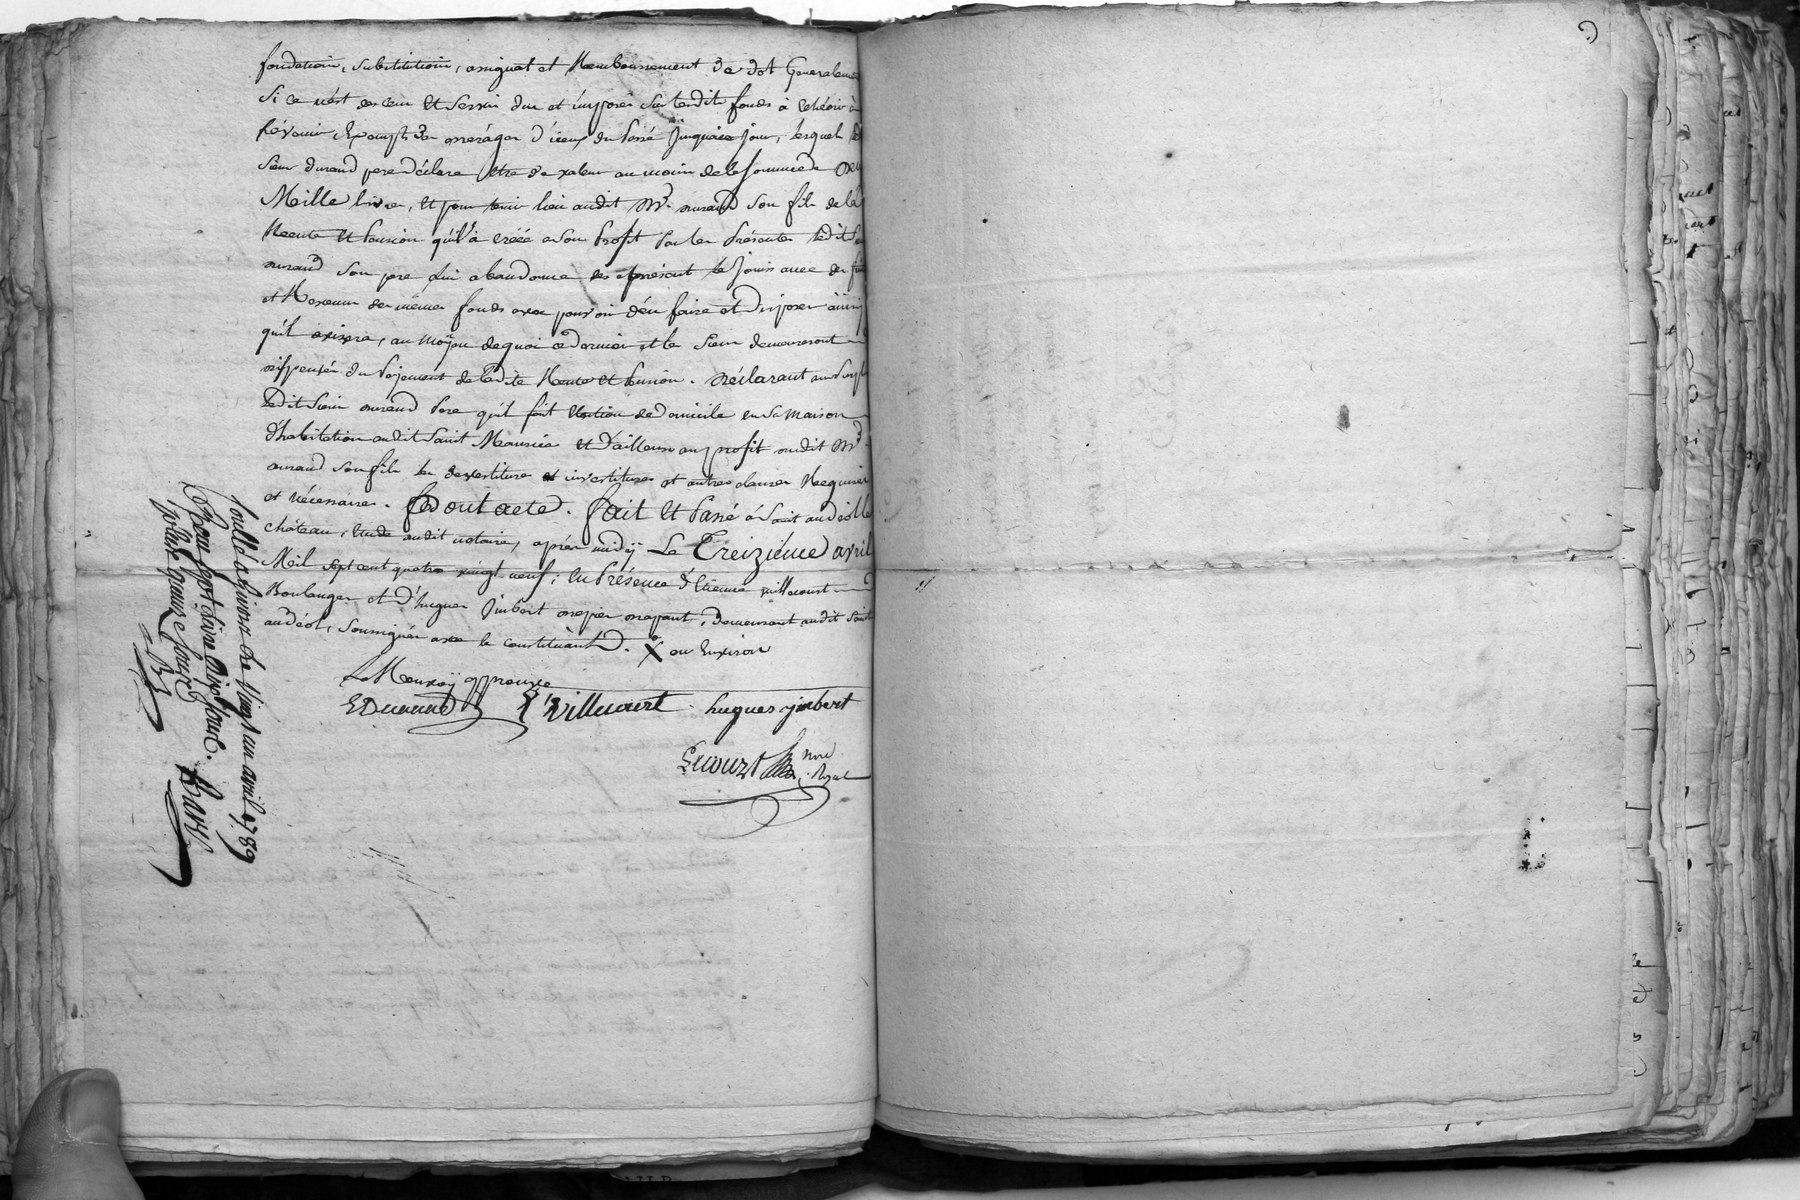 fondation, substitution, assignat et Remboursement de dot Generalement
Si ce n'est des cens et servis dus et imposés sur lesdits fonds à echéoir à
l'évenir, Exempts des arrérages d'iceux du Passé jusqu'à ce jour, lesquels
Sieur durand pere déclare Etre de valeur au moin de la somme de deux
Mille livres, et pour tenir lieu audit Mr. durand son fils de la
Rente et Pension qu'il à créée a son Profit Par les Présentes ledit Sr
durand son pere lui abandonne des apresent la Jouissance des
et Revenus des mêmes fonds avec pouvoir d'en faire et disposer ainsi
qu'il avisera, au moÿen de quoi ce dernier et le Sieur demeureront
dispensés du Paÿement de ladite Rente et Pension. déclarant au surplus
Ledit Sieur durand Pere qu'il fait Election de domicile en sa maison
d'habitation audit Saint Maurice et d'ailleurs au profit audit Mr
durand son fils les devestitures et investitures et autres clauses Requises
et nécessaires. dont acte. fait et Passé à Saint andéol le
château, Etude audit notaire, après midÿ Le Treiziéme avril
Mil sept cent quatre vingt neuf; En Présence d'Etienne villecourt
Boulanger et d'hugues Jimbert demeurant audit Saint
andéol, Soussignés avec le constituant. X ou Environ
Le Renvoÿ approuvé
EDurand EVillecourt hugues jimbert
Lecourt nre Royal
Conllé a Givors Le Vingt un avril 1789
Reçu sept Livres dix sous.